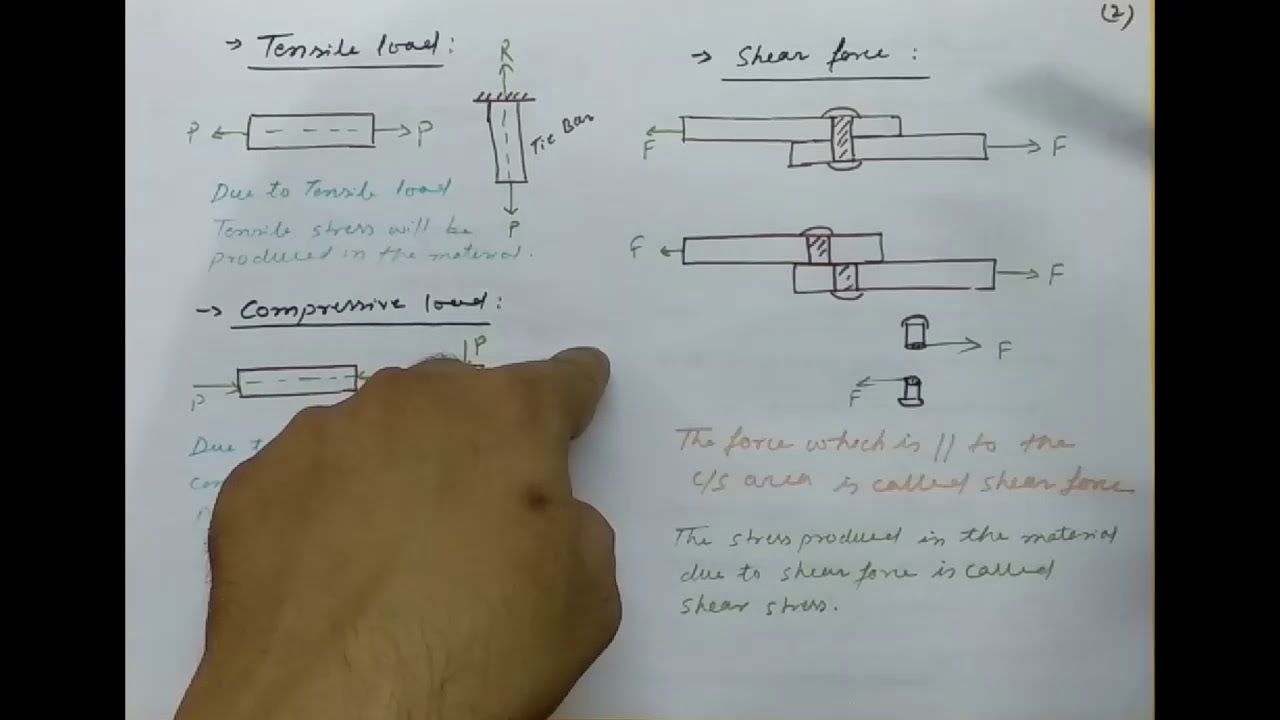 (2)
→ Tensile load:
R
P
P
Tie Bar
P
Due to Tensile load
Tensile stress will be
produced in the material.
→ Compressive load:
P
P
Due
→ Shear force:
F
F
F
F
F
F
The force which is // to the
c/s area is called shear force
The stress produced in the material
due to shear force is called
shear stress.